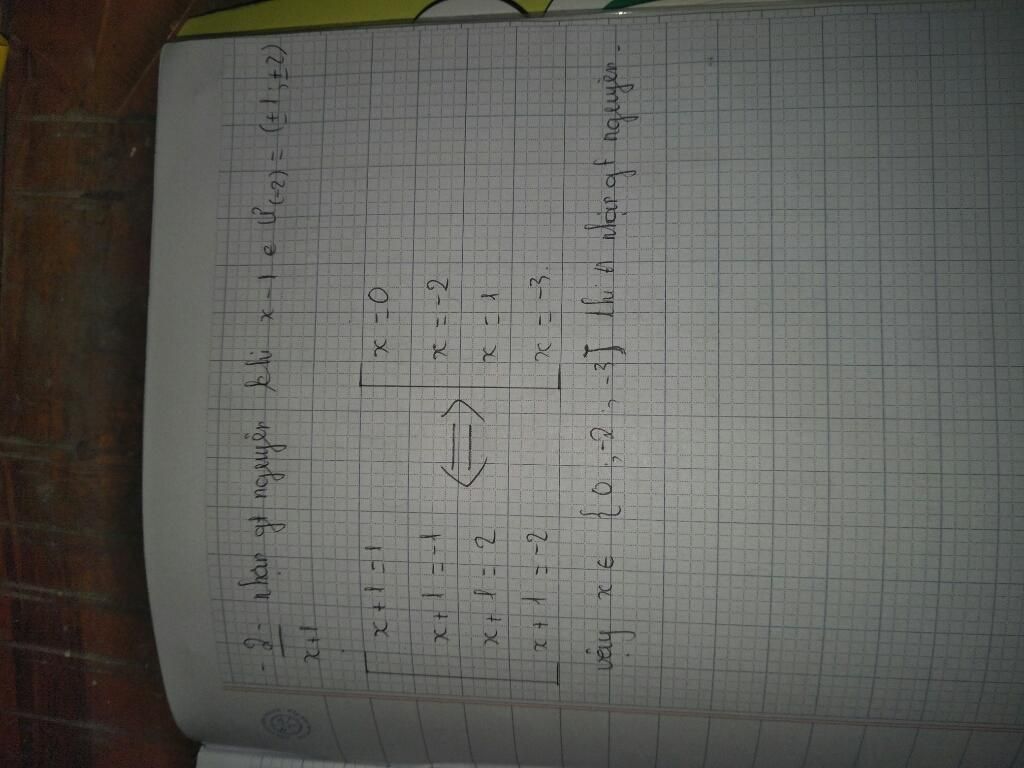 -2/x+1 nhận gt nguyên khi x-1 e Ư(-2) = (±1; ±2)
x+1=1 x=0
x+1=-1 ⟺ x=-2
x+1=2 x=1
x+1=-2 x=-3
vậy x ∈ {0; -2; -3} thì A nhận gt nguyên.